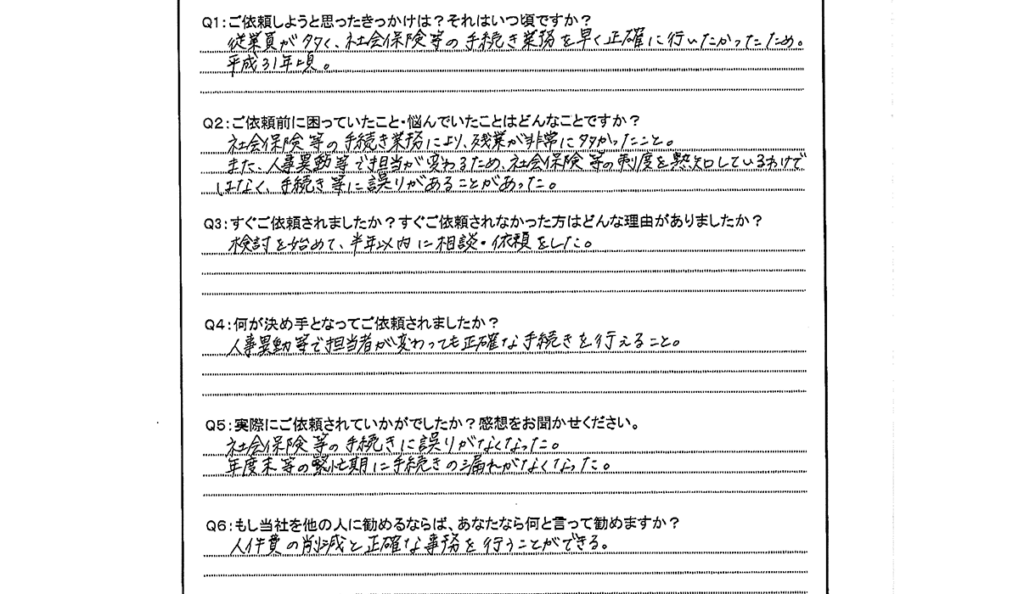 Q1:ご依頼しようと思ったきっかけは?それはいつ頃ですか?
従業員が多く、社会保険等の手続き業務を早く正確に行いたかったため。
平成31年頃。
Q2:ご依頼前に困っていたこと・悩んでいたことはどんなことですか?
社会保険等の手続き業務により、残業が非常に多かったこと。
また、人事異動等で担当が変わるため、社会保険等の制度を熟知しているわけで
はなく、手続き等に誤りがあることがあった。
Q3:すぐご依頼されましたか?すぐご依頼されなかった方はどんな理由がありましたか?
検討を始めて、半年以内に相談・依頼をした。
Q4:何が決め手となってご依頼されましたか?
人事異動等で担当者が変わっても正確な手続きを行えること。
Q5:実際にご依頼されていかがでしたか?感想をお聞かせください。
社会保険等の手続きに誤りがなくなった。
年度末等の繁忙期に手続きの漏れがなくなった。
Q6:もし当社を他の人に勧めるならば、あなたなら何と言って勧めますか?
人件費の削減と正確な事務を行うことができる。